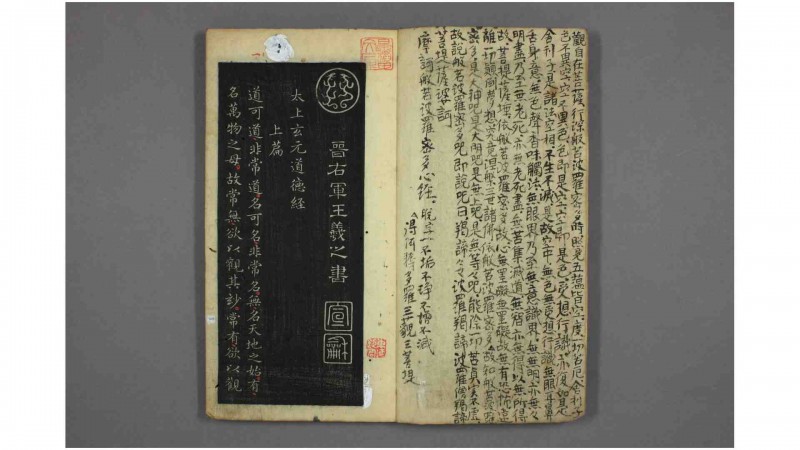 觀自在菩薩行深般若波羅密多時照見五蘊皆空度一切苦厄舍利子
色不異空空不異色色即是空空即是色受想行識亦復如是
舍利子是諸法空相不生不滅是故空中無色無受想行識無眼耳鼻
舌身意無色聲香味觸法無眼界乃至無意識界無無明亦無々
明盡乃至無老死亦無老死盡無苦集滅道無智亦無得以無所得
故菩提薩埵依般若波羅密多故心無罣礙無罣礙故無有恐怖遠
離顛倒夢想究竟涅槃三世諸佛依般若波羅密多故知般若波羅
密多是大神呪是大明呪是無上呪是無等々呪能除一切苦真實不虛
故說般若波羅密多呪即說呪曰羯諦々々波羅羯諦波羅僧羯諦
菩提薩婆訶
摩訶般若波羅密多心経 脫字 不垢不淨不增不減
得阿耨多羅三藐三菩提
晉右軍王羲之書
宣
龢
太上玄元道德経
上篇
道可道非常道名可名非常名無名天地之始有
名萬物之母故常無欲以觀其妙常有欲以觀